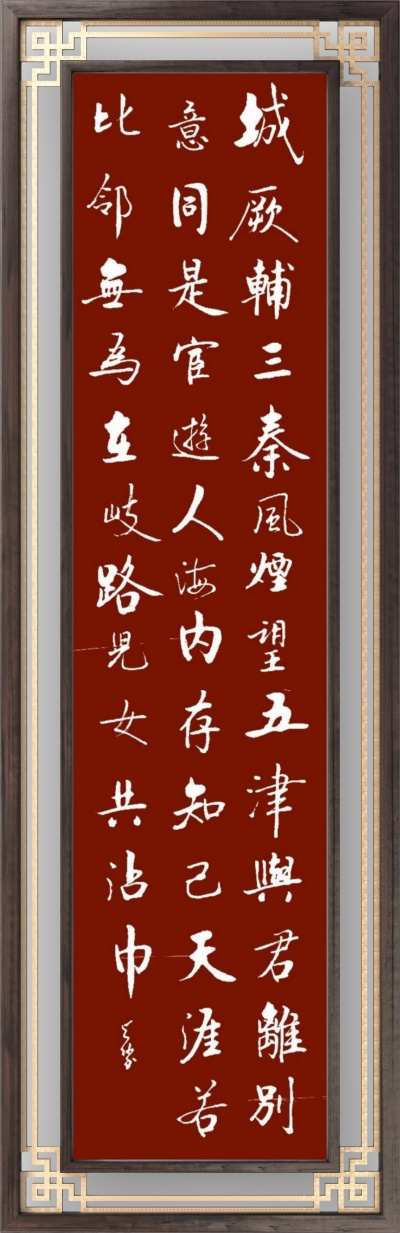 城厥輔三秦風煙望五津與君離別
意同是宦遊人海内存知己天涯若
比鄰無為在岐路児女共沾巾